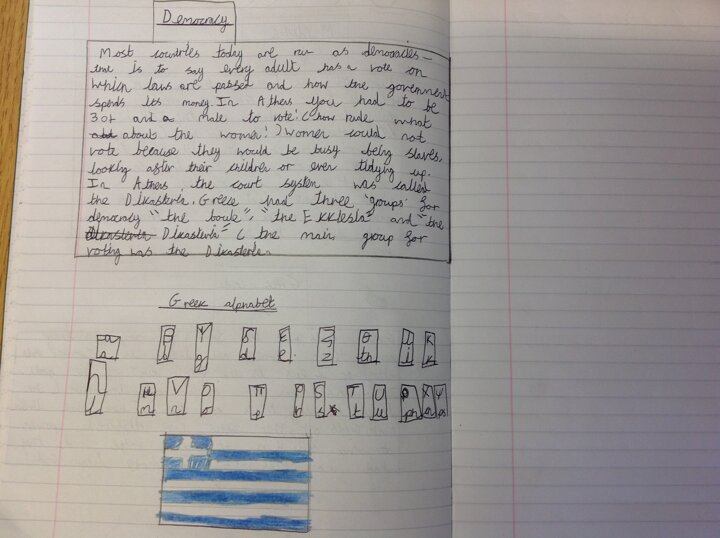 Democracy
Most countries today are run as democracies –
time is to say every adult has a vote on
which laws are passed and how the government
spends its money. In Athens you had to be
30+ and a male to vote! (how rude what
about the women!) Women could not
vote because they would be busy being slaves,
looking after their children or even tidying up.
In Athens the court system was called
the Dikasteria. Greese had three "groups" for
democracy "the boule", "the Ekklesia" and "the
Dikasteria" ( the main group for
voting was the Dikasteria.
Greek alphabet
α β γ δ ε ζ θ i κ
a b g d e z th i k
μ ν ο π ρ s τ υ φ χ ψ
l m n o p s t u ph ps